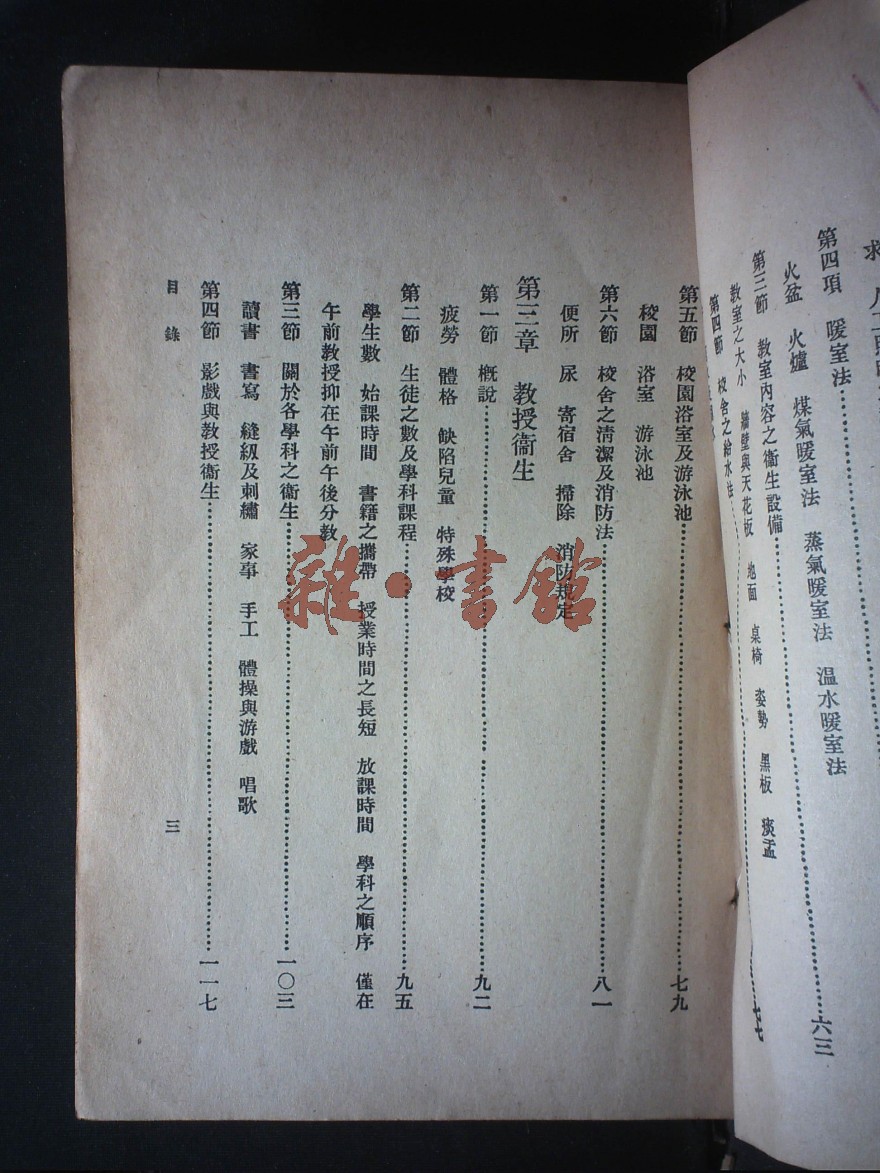 第四項　暖室法……六三
火盆　火爐　煤氣暖室法　蒸氣暖室法　温水暖室法
第三節　教室內容之衞生設備……七七
教室之大小　牆壁與天花板　地面　桌椅　姿勢　黑板　痰盂
第四節　校舍之給水法……
第五節　校園浴室及游泳池……七九
校園　浴室　游泳池
第六節　校舍之清潔及消防法……八一
便所　尿　寄宿舍　掃除　消防規定
第三章　教授衞生
第一節　概說……九二
疲勞　體格　缺陷兒童　特殊學校
第二節　生徒之數及學科課程……九五
學生數　始課時間　書籍之攜帶　授業時間之長短　放課時間　學科之順序　僅在
午前教授抑在午前午後分教
第三節　關於各學科之衞生……一〇三
讀書　書寫　縫紉及刺繡　家事　手工　體操與游戲　唱歌
第四節　影戲與教授衞生……一一七
目錄
三
雜·書館